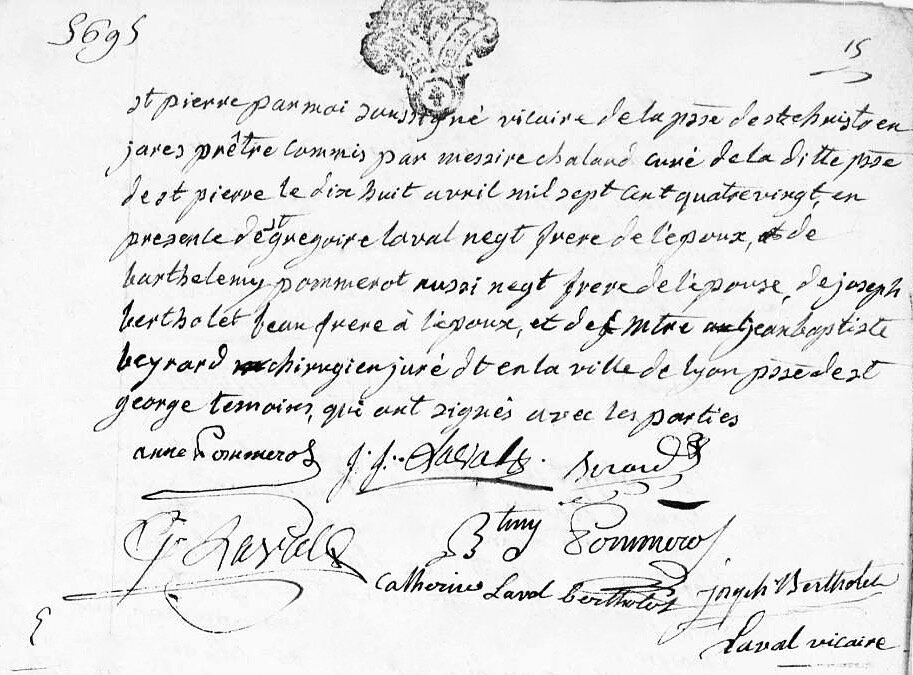 5695
15
st pierre par moi soussigné vicaire de la psse de st christo en
jares prêtre commis par messire chaland curé de la ditte psse
de st pierre le dix huit avril mil sept cent quatrevingt, en
presence de st gregoire laval negt frere de l'epoux, de
barthelemy pommerot aussi negt frere de l'epouse, de joseph
bertholet beau frere à l'epoux, et de mtre jean baptiste
beyrard chirugien juré dt en la ville de lyon psse de st
george temoins, qui ont signés avec les parties
anne Pommerot J. J. Laval Berard
Gr Laval Btmy Pommerot
Catherine Laval bertholet joseph Bertholet
Laval vicaire